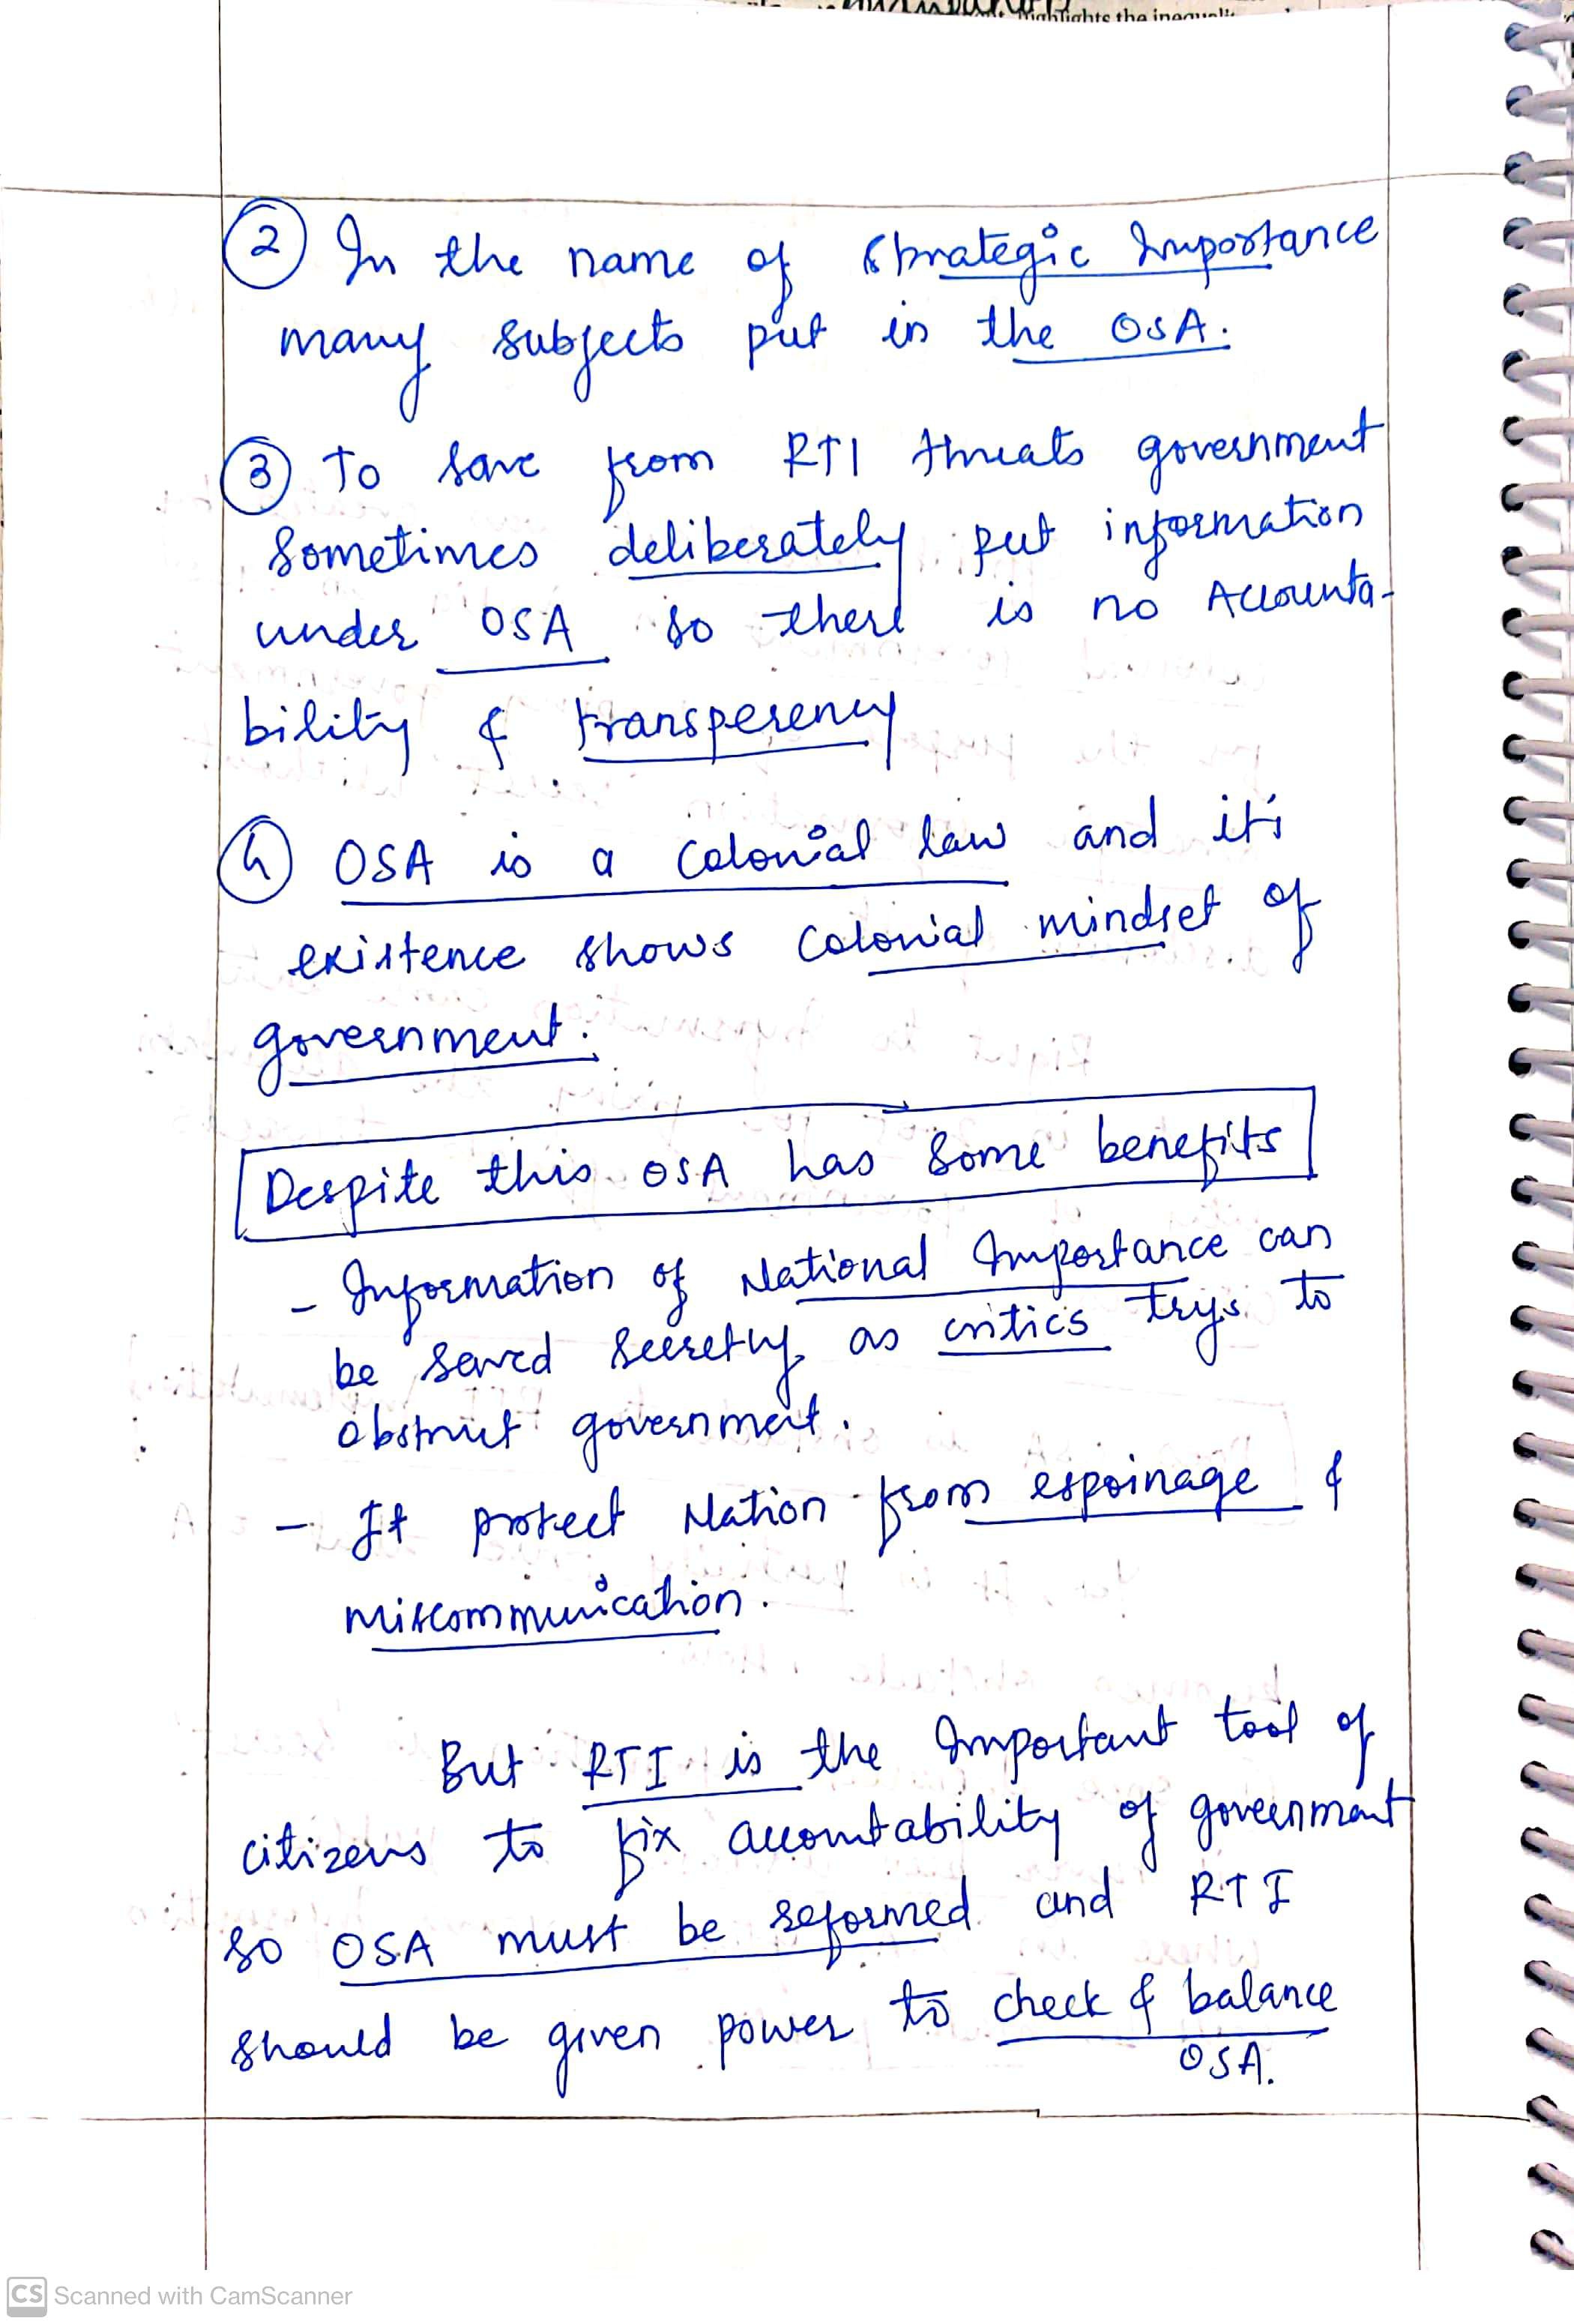 highlights the inequali
② In the name of strategic Importance
many subjects put in the OSA.
③ To save from RTI threats government
sometimes deliberately put information
under OSA so there is no Accounta-
bility & transperency
④ OSA is a colonial law and it's
existence shows colonial mindset of
government.
Despite this OSA has some benefits
- Information of National Importance can
be saved secretly as critics trys to
obstruct government.
- It protect Nation from espoinage &
miscommunication.
But RTI is the Important tool of
citizens to fix accountability of government
so OSA must be reformed and RTI
should be given power to check & balance
OSA.
CS Scanned with CamScanner